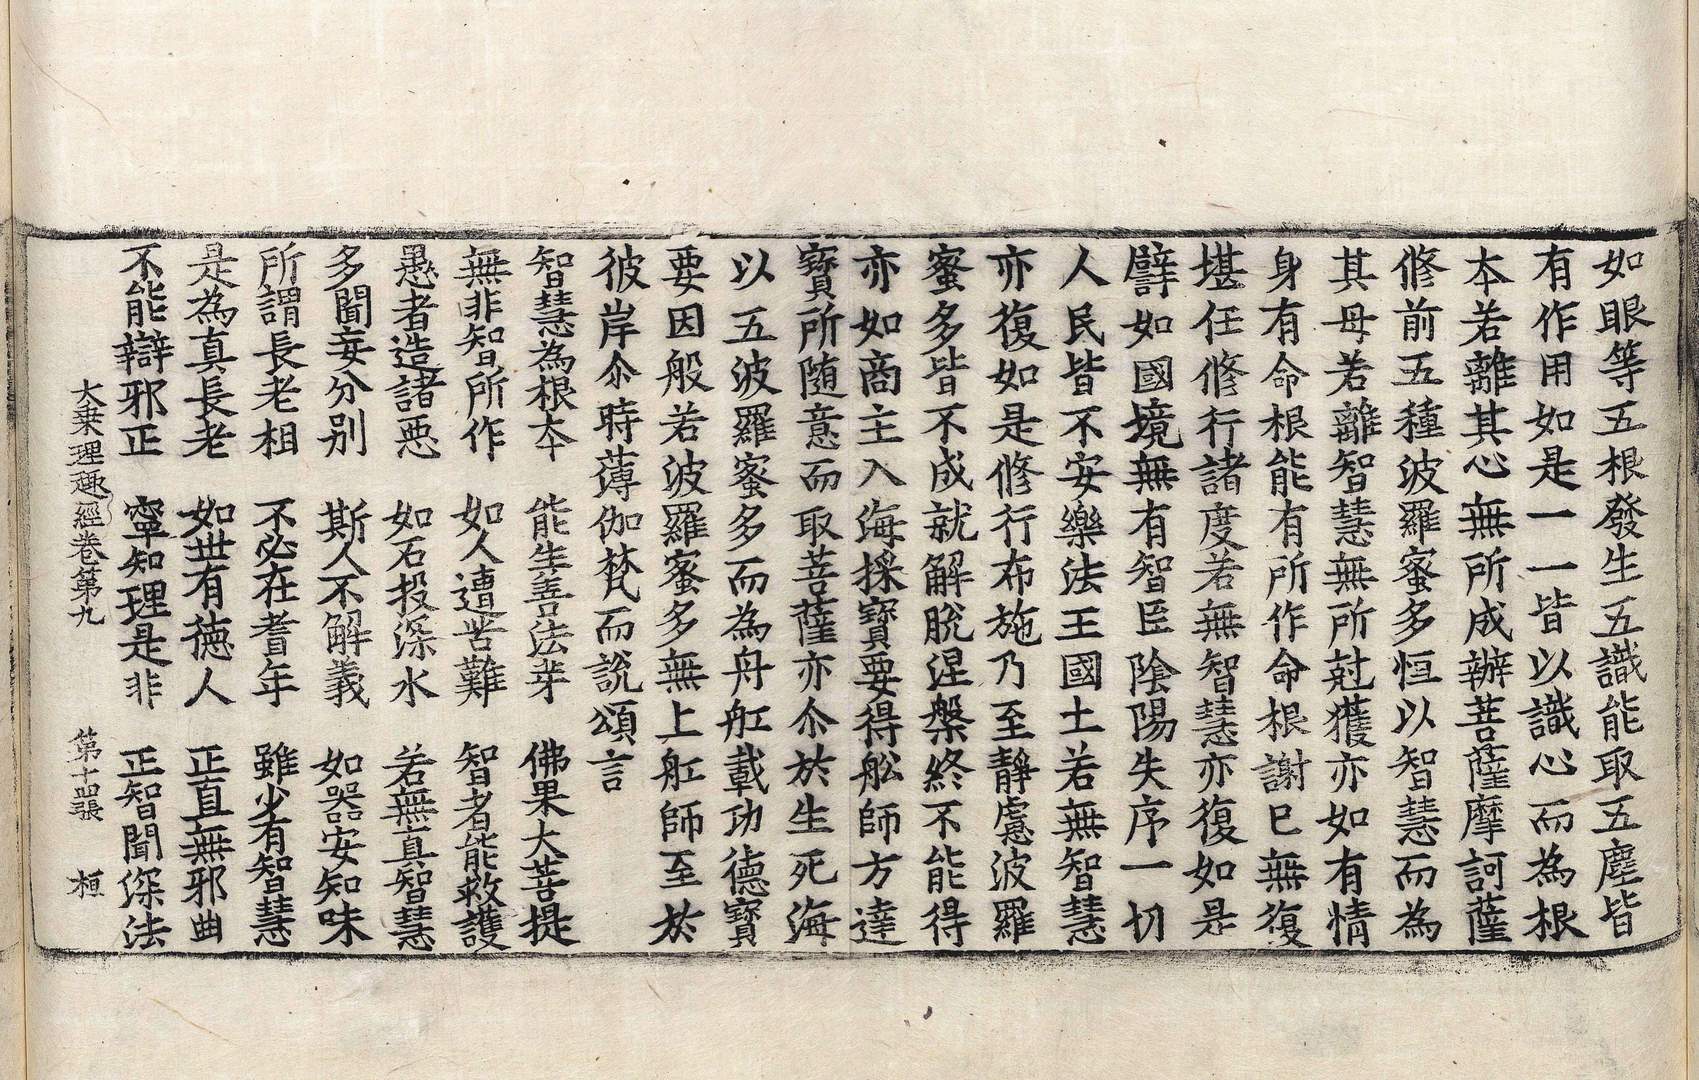 如眼等五根發生五識能取五塵皆
有作用如是一一皆以識心而為根
本若離其心無所成辦菩薩摩訶薩
修前五種波羅蜜多恒以智慧而為
其母若離智慧無所尅獲亦如有情
身有命根能有所作命根謝已無復
堪任修行諸度若無智慧亦復如是
譬如國境無有智臣陰陽失序一切
人民皆不安樂法王國土若無智慧
亦復如是修行布施乃至靜慮波羅
蜜多皆不成就解脫涅槃終不能得
亦如商主入海採寶要得舩師方達
寶所随意而取菩薩亦尒於生死海
以五波羅蜜多而為舟舡載功德寶
要因般若波羅蜜多無上舡師至於
彼岸尒時薄伽梵而說頌言
智慧為根本　能生善法芽　佛果大菩提
無非智所作　如人遭苦難　智者能救護
愚者造諸惡　如石投深水　若無真智慧
多聞妄分别　斯人不解義　如器安知味
所謂長老相　不必在耆年　雖少有智慧
是為真長老　如世有德人　正直無邪曲
不能辯邪正　寧知理是非　正智聞深法
大乗理趣經卷第九　第十四張　桓